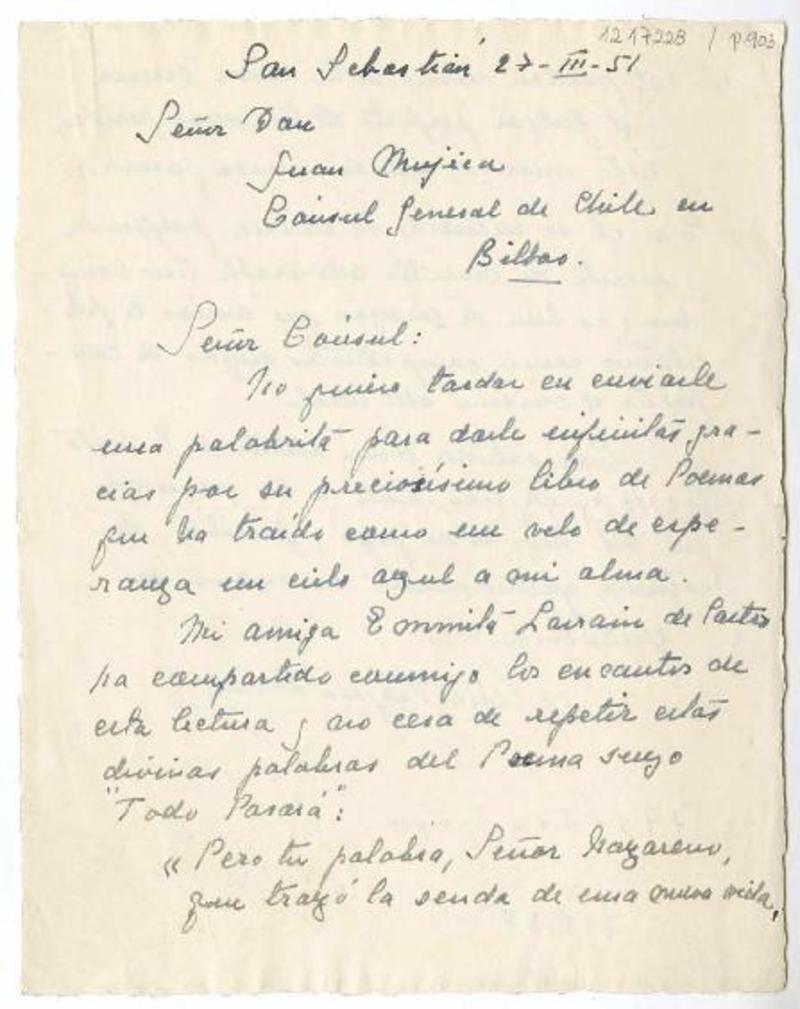 1217228 / p.903
San Sebastián 27-III-51
Señor Don
Juan Mujica
Cónsul General de Chile en
Bilbao.
Señor Cónsul:
No quiero tardar en enviarle
una palabrita para darle infinitas gra-
cias por su preciosísimo libro de Poemas
que ha traído como un velo de espe-
ranza un cielo azul a mi alma.
Mi amiga Emmita Larrain de Castro
ha compartido conmigo los encantos de
esta lectura y no cesa de repetir estas
divinas palabras del Poema suyo
"Todo Pasará":
"Pero tu palabra, Señor Nazareno,
que trazó la senda de una nueva vida,